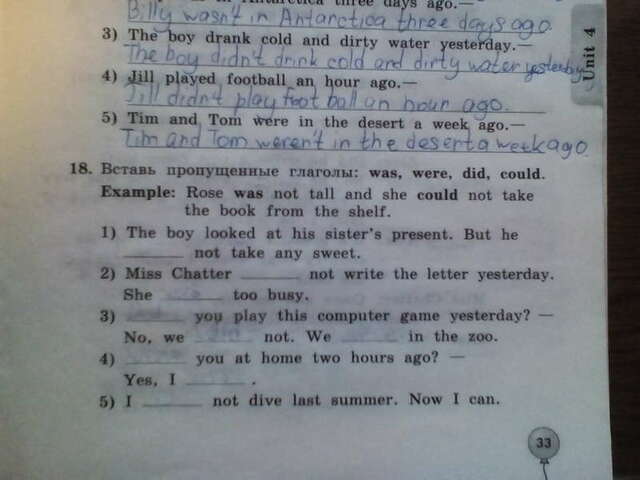 in Antarctica three days ago.—
Billy wasn't in Antarctica three days ago.
3) The boy drank cold and dirty water yesterday.—
The boy didn't drink cold and dirty water yesterday.
4) Jill played football an hour ago.—
Jill didn't play foot ball an hour ago.
5) Tim and Tom were in the desert a week ago.—
Tim and Tom weren't in the desert a week ago.
Unit 4
18. Вставь пропущенные глаголы: was, were, did, could.
Example: Rose was not tall and she could not take
the book from the shelf.
1) The boy looked at his sister's present. But he
______ not take any sweet.
2) Miss Chatter ______ not write the letter yesterday.
She ______ too busy.
3) ______ you play this computer game yesterday? —
No, we ______ not. We ______ in the zoo.
4) ______ you at home two hours ago? —
Yes, I ______ .
5) I ______ not dive last summer. Now I can.
33